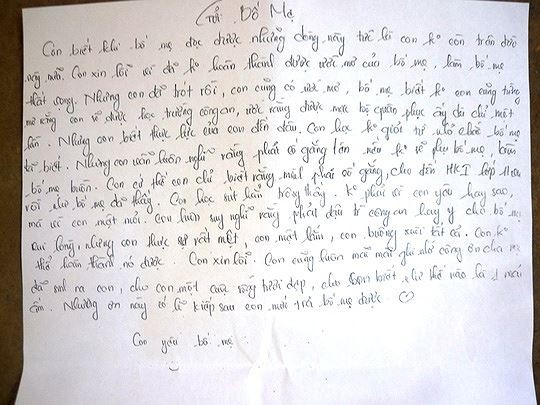 Gửi Bố Mẹ
Con biết khi bố mẹ đọc được những dòng này tức là con ko còn trên đời
này nữa. Con xin lỗi vì đã ko hoàn thành được ước mơ của bố mẹ, làm bố mẹ
thất vọng. Nhưng con đã trót rồi, con cũng có ước mơ, bố mẹ biết ko con cũng từng
mơ rằng con sẽ được học trường công an, ước rằng được mặc bộ quân phục ấy dù chỉ một
lần. Nhưng con biết thực lực của con đến đâu. Con học ko giỏi từ nhỏ chắc bố mẹ
đã biết. Nhưng con luôn luôn nghĩ rằng phải cố gắng lên nếu ko sẽ phụ bố mẹ, làm
bố mẹ buồn. Con có thể con chỉ biết rằng mình phải cố gắng, cho đến HKI lớp
rồi như bố mẹ đã thấy. Con học sút hẳn trông thấy. Ko phải vì con yêu hay sao,
mà vì con mệt mỏi. Con luôn suy nghĩ rằng phải đậu trg công an hay y cho bố mẹ
vui lòng, nhưng con thực sự rất mệt, con mệt lắm, con buông xuôi tất cả. Con ko
thể hoàn thành nó được. Con xin lỗi. Con cũng luôn mãi mãi ghi nhớ công ơn cha mẹ
đã sinh ra con, cho con một cuộc sống tươi đẹp, cho con biết như thế nào là 1 mái
ấm. Nhưng ơn này có lẽ kiếp sau con mới trả bố mẹ được ♡
Con yêu bố mẹ